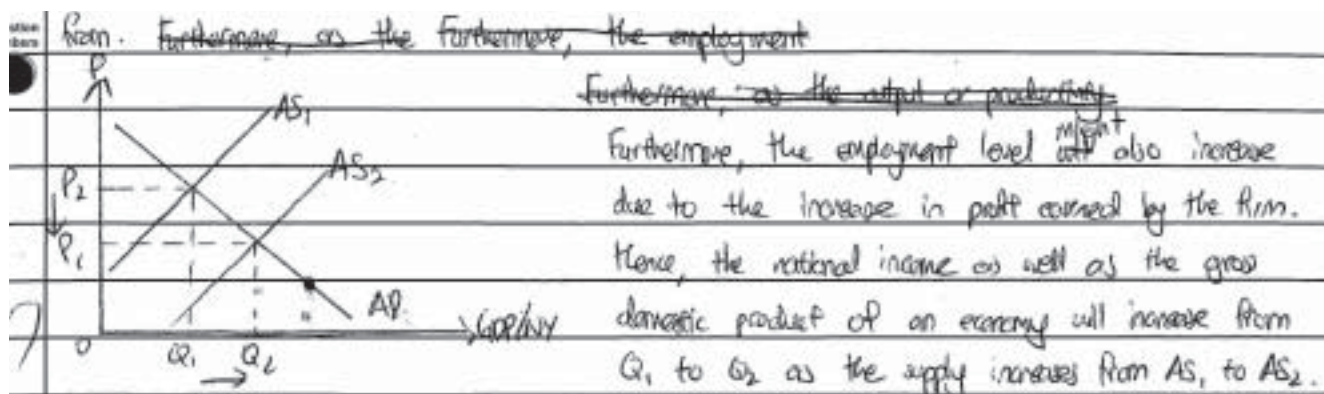 from. Furthermore, as the Furthermore, the employment
Furthermore, as the output or productivity
Furthermore, the employment level might also increase
due to the increase in profit earned by the firm.
Hence, the national income as well as the gross
domestic product of an economy will increase from
Q1 to Q2 as the supply increases from AS1 to AS2.
P
AS1
AS2
P2
P1
AD
GDP/NY
0
Q1
Q2